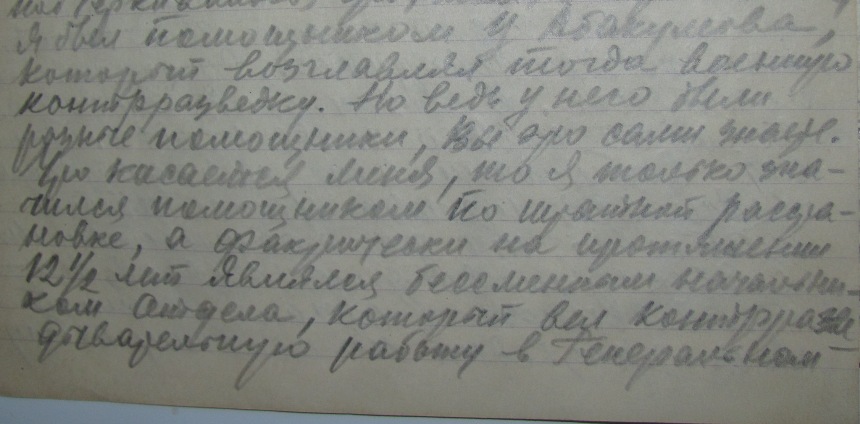 Я был помощником у Абакумова,
который возглавлял тогда военную
контрразведку. Но ведь у него были
разные помощники, Вы это сами знаете.
Что касается меня, то я только зна-
чился помощником по штатной расста-
новке, а фактически на протяжении
12 1/2 лет являлся бессменным начальни-
ком отдела, который вел контрразве
дывательную работу в Генеральном